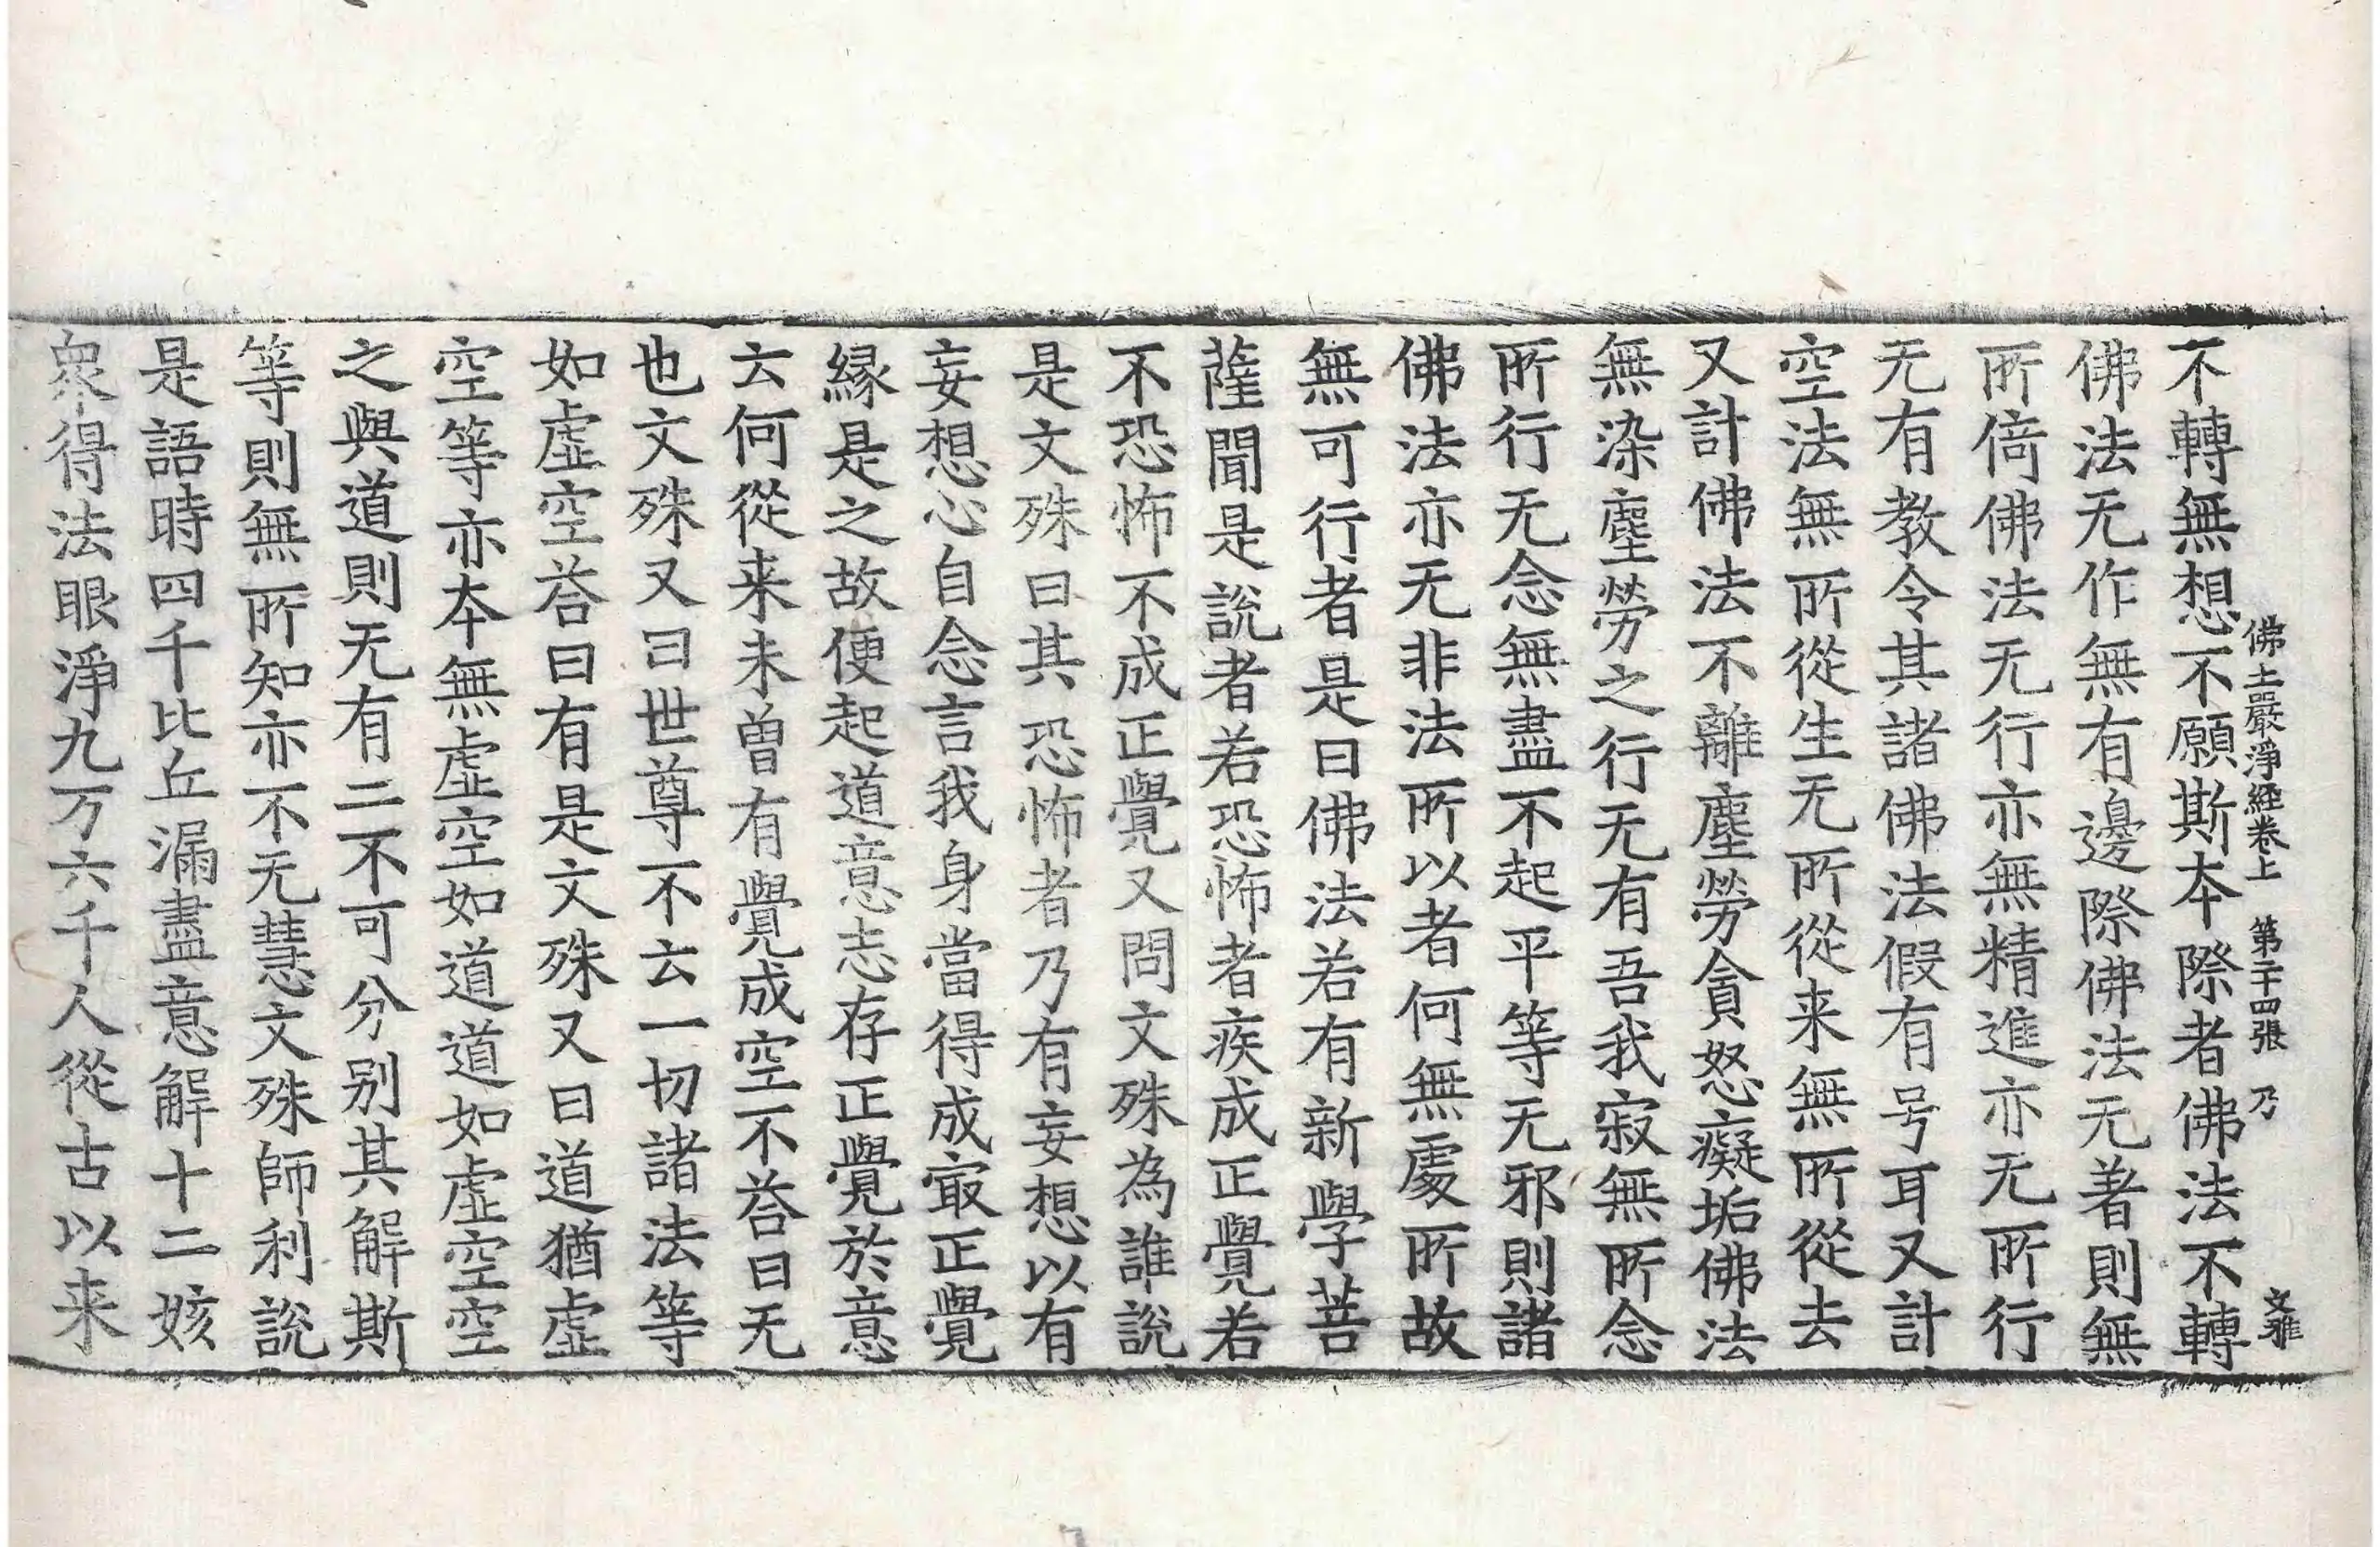 佛土嚴淨経卷上　第二十四張　乃　文雅
不轉無想不願斯本際者佛法不轉
佛法无作無有邊際佛法无著則無
所倚佛法无行亦無精進亦无所行
无有教令其諸佛法假有号耳又計
空法無所從生无所從来無所從去
又計佛法不離塵勞貪怒癡垢佛法
無染塵勞之行无有吾我寂無所念
所行无念無盡不起平等无邪則諸
佛法亦无非法所以者何無處所故
無可行者是曰佛法若有新學菩
薩聞是說者若恐怖者疾成正覺若
不恐怖不成正覺又問文殊為誰說
是文殊曰其恐怖者乃有妄想以有
妄想心自念言我身當得成㝡正覺
緣是之故便起道意志存正覺於意
云何從来未曽有覺成空不荅曰无
也文殊又曰世尊不云一切諸法等
如虛空荅曰有是文殊又曰道猶虛
空等亦本無虛空如道道如虛空空
之與道則无有二不可分别其解斯
等則無所知亦不无慧文殊師利說
是語時四千比丘漏盡意解十二姟
衆得法眼淨九万六千人從古以来